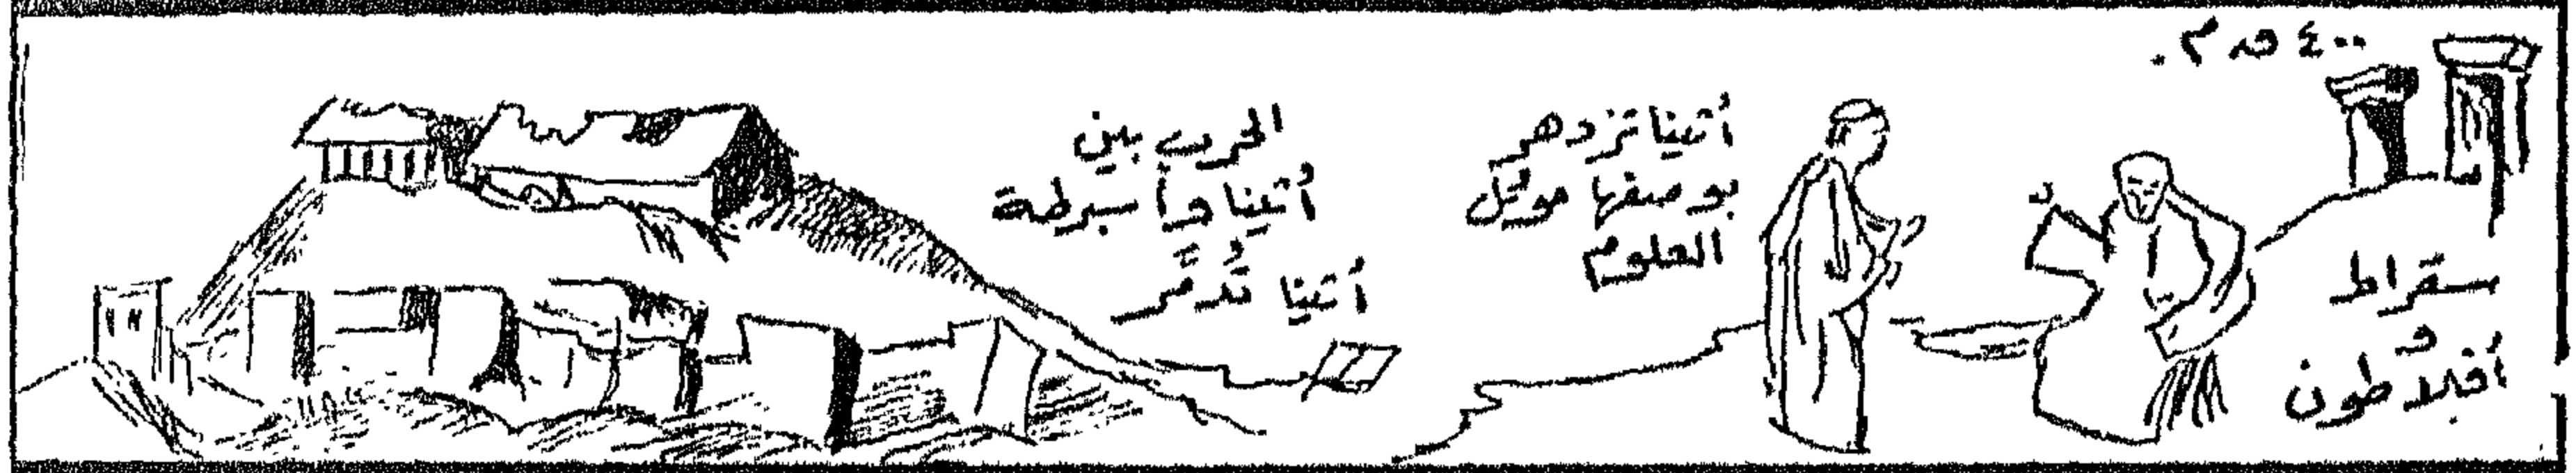 ٤٠٠ ق م.
سقراط
و
أفلاطون
أثينا تزدهر
بوصفها موئل
العلوم
الحرب بين
أثينا وأسبرطة
أثينا تُدمَّر